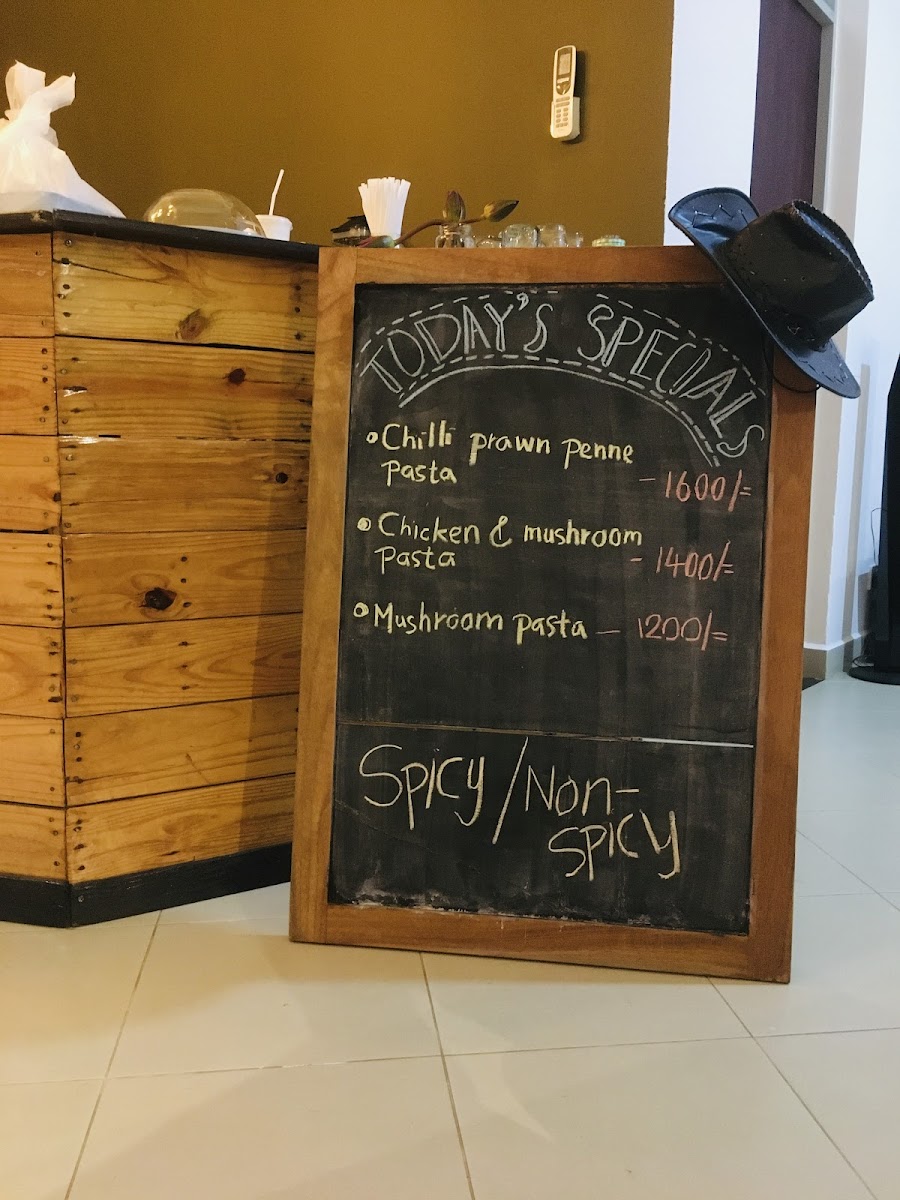 TODAY'S SPECIALS
• Chilli prawn penne
pasta - 1600/=
• Chicken & mushroom
pasta - 1400/=
• Mushroom pasta - 1200/=
SPICY / NON-
SPICY